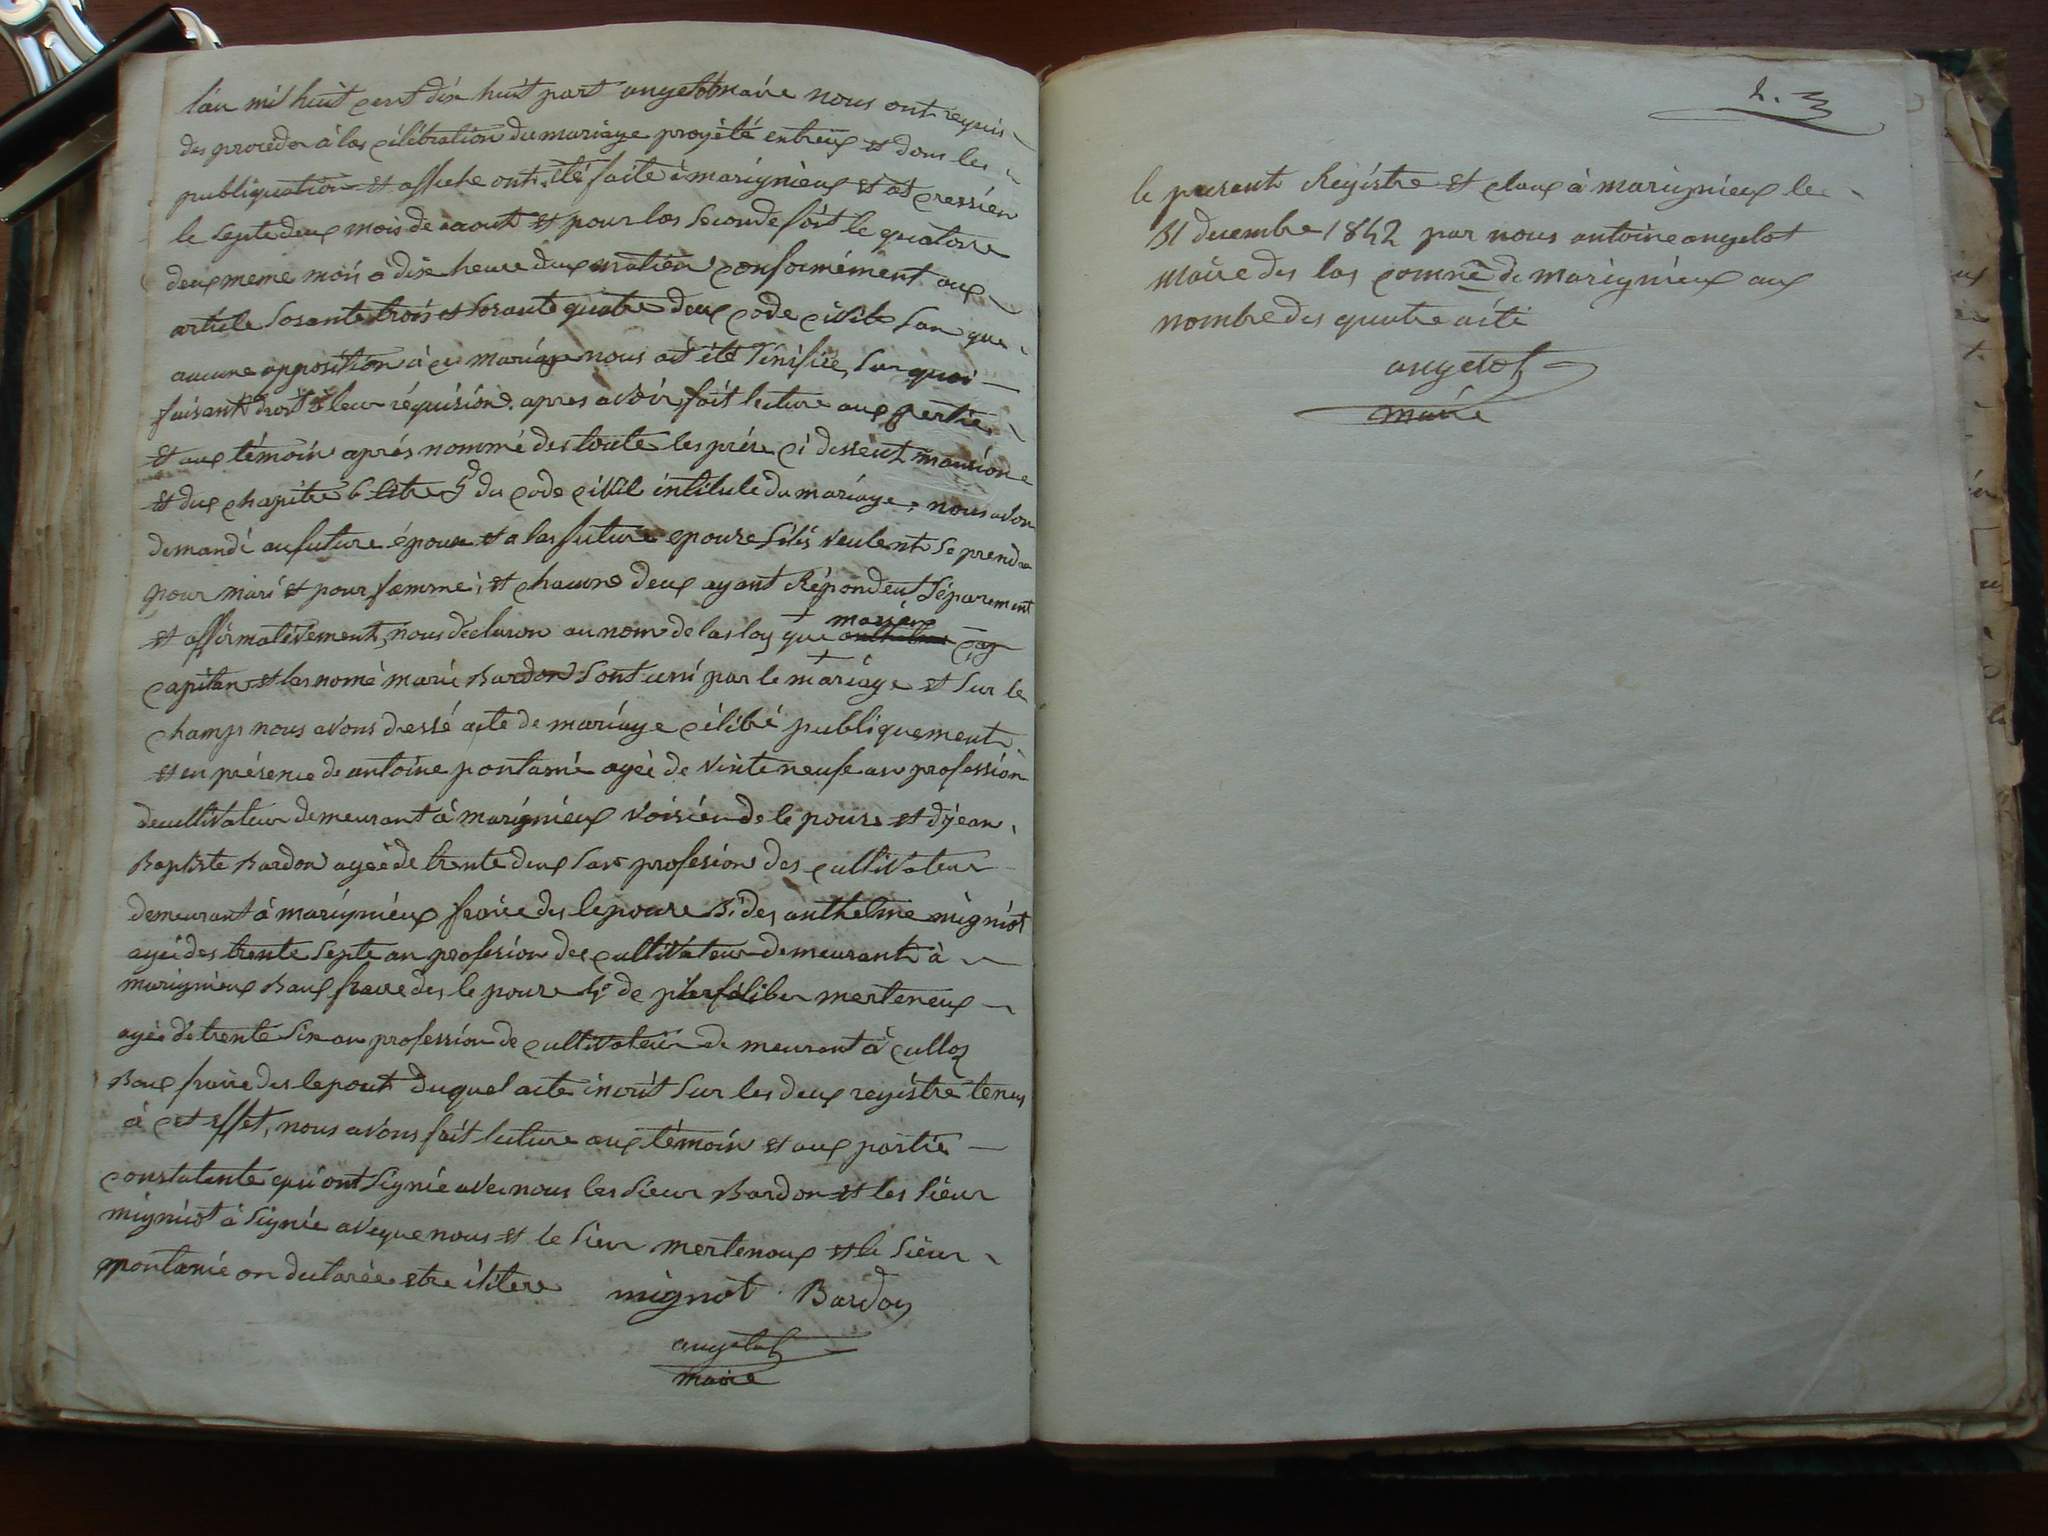 l'an mil huit cent dix huit part angelot maire nous ont requis
des proceder à las célébration du mariage projété entreux et dons les
publiquation et affiche ont été faite à marignieux et at cressien
le septe deux mois de aout et pour las seconde fois le quatorse
deux meme mois a dix heure dux matien conformément aux
article sosante trois et sosante quatre deux code civile san que
aucune opposition à ce mariage nous ait été sinifiée, sur quoi
faisant droit à leur réquision. apres avoir fait lecture aux partie
et aux témoin après nommé des toute les piése ci desseut mansione
et dux chapitre 6 litre 5 du code civil intitule du mariage, nous avon
demandé au future épouse et a las future epouse silis veulent se prendre
pour mari et pour femme; et chacune deux ayant Répondeut séparement
et affirmativement, nous déclaron au nom de las loy que
capitan et las nomé marie Bardon sont uni par le mariage et sur le
champs nous avons dressé acte de mariage célébré publiquement
et en présence de antoine pontanié agée de vinte neufe an profession
de cultivateur demeurant à marignieux voisien de le pouse et de jean
Baptiste Bardon agée de trente deux san profesion des cultivateur
demeurant à marignieux fraire des le pouse Si des anthelme migniot
agée des trente septe an profesion des cultivateur demeurant à
marignieux Baux fraire des le pouse de mertenoux
agée de trente six an profession de cultivateur de meurant à culloz
Baux fraire des le pout duquel acte incrit sur les deux registre tenus
à cet effet, nous avons fait lecture aux témoin et aux partie
constatente qui ont signée avec nous les sieur Bardon et les sieur
migniot à signée aveque nous et le sieur mertenoux et le sieur
pontanié on declarée etre ilitere mignot Bardon
angelot
maire
2.
le present Registre et claux à marignieux le
31 decembre 1842 par nous antoine angelot
maire des las comne de marignieux aux
nombre des quatre acte
angelot
maire